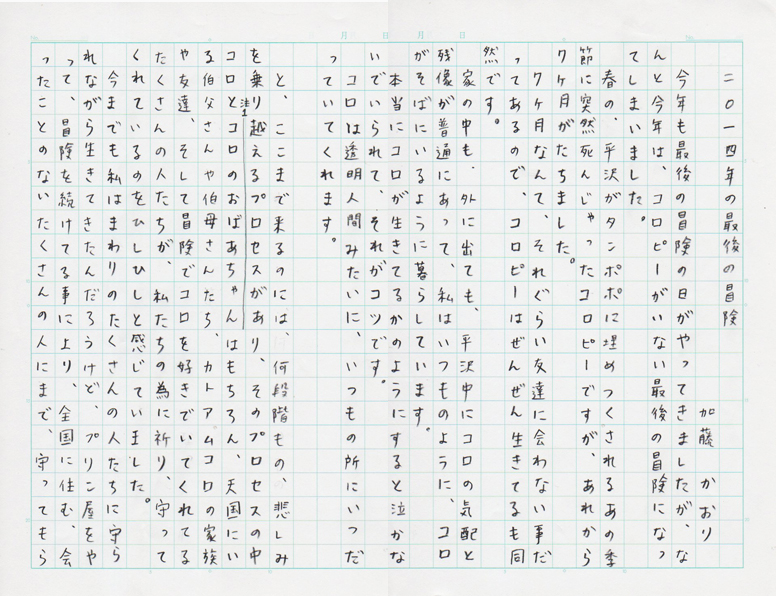 二〇一四年の最後の冒険
加藤かおり
今年も最後の冒険の日がやってきましたが、な
んと今年は、コロピーがいない最後の冒険になっ
てしまいました。
春の、平沢がタンポポに埋めつくされるあの季
節に突然死んじゃったコロピーですが、あれから
7ヶ月がたちました。
7ヶ月なんて、それぐらい友達に会わない事だ
ってあるので、コロピーはぜんぜん生きてるも同
然です。
家の中も、外に出ても、平沢中にコロの気配と
残像が普通にあって、私はいつものように、コロ
がそばにいるように暮らしています。
本当にコロが生きてるかのようにすると泣かな
いでいられて、それがコツです。
コロは透明人間みたいに、いつもの所にいつだ
っていてくれます。
と、ここまで来るのには、何段階もの、悲しみ
を乗り越えるプロセスがあり、そのプロセスの中
注1
コロとコロのおばあちゃんはもちろん、天国にい
る伯父さんや伯母さんたち、カトアムコロの家族
や友達、そして冒険でコロを好きでいてくれてる
たくさんの人たちが、私たちの為に祈り、守って
くれているのをひしひしと感じていました。
今までも私はまわりのたくさんの人たちに守ら
れながら生きてきたんだろうけど、プリン屋をや
って、冒険を続けてる事により、全国に住む、会
ったことのないたくさんの人にまで、守ってもら